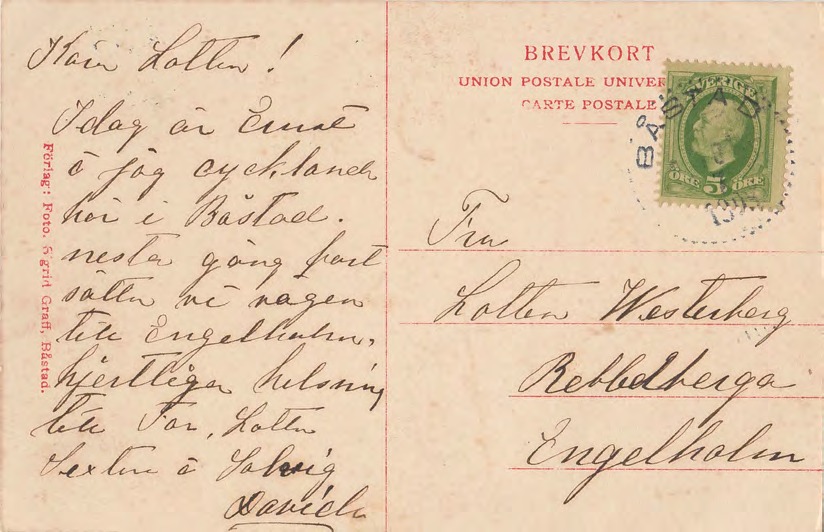 Kära Lotten!
Idag är Ernst
å jag cycklande
här i Båstad.
nesta gång fort
sätter vi vägen
till Engelholm,
hjertliga helsning
till Far, Lotten
Sexten å Solveig
David
Förlag: Foto. Sigrid Graff, Båstad.
BREVKORT
UNION POSTALE UNIVER
CARTE POSTALE
SVERIGE
ÖRE 5 ÖRE
BÅSTAD
Fru
Lotten Westerberg
Rebbelberga
Engelholm